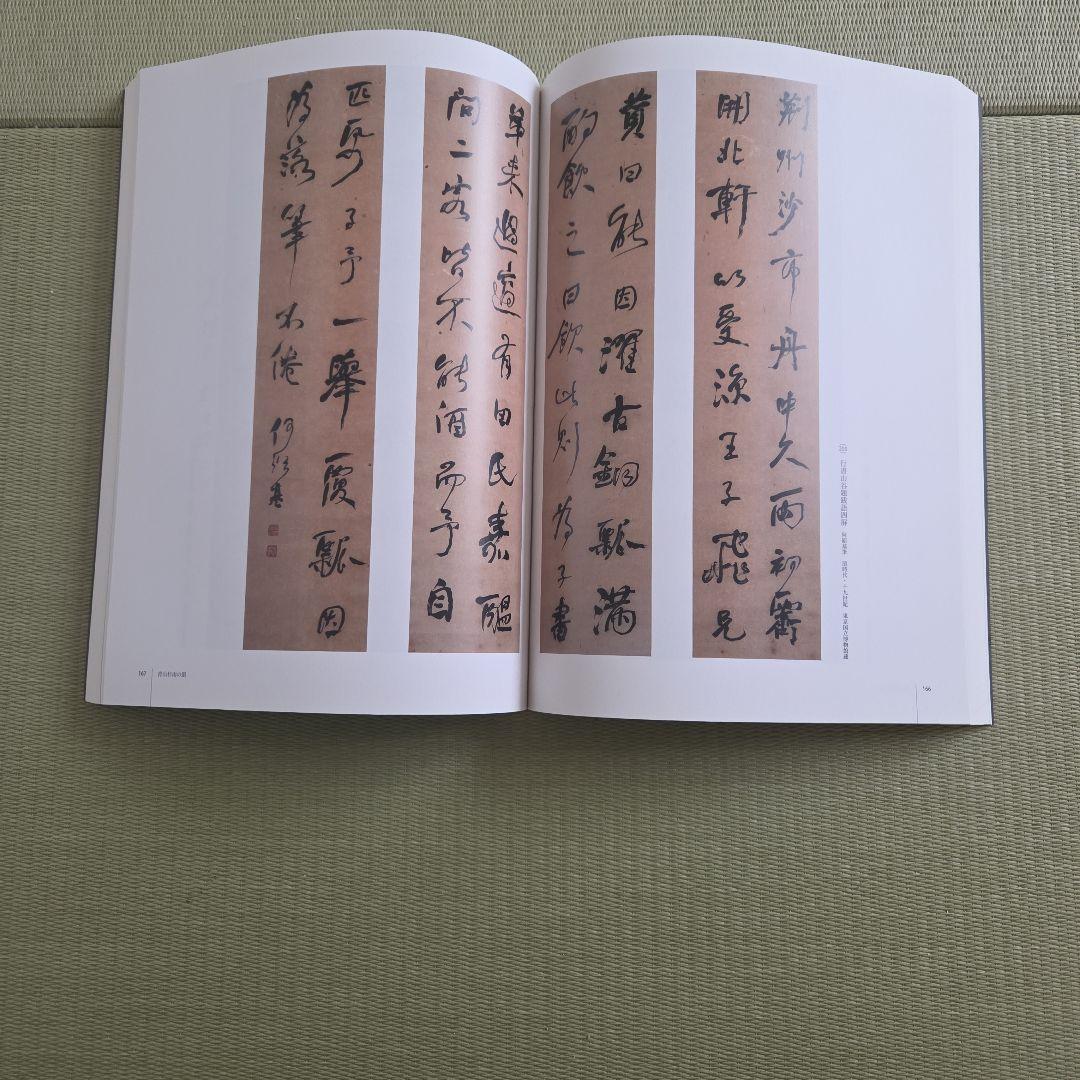 荊州沙市舟中久雨初霽
開北軒以受涼王子飛兄
弟来過適有田氏嘉醞
問二客皆不能酒而予自
贊曰能因濯古銅瓢滿
酌飲之曰飲此則為子書
匹紙子予一舉覆瓢因
為落筆不倦 何紹基
行書山谷題跋語四屏 何紹基筆 清時代・十九世紀 東京国立博物館蔵
166
167
青山杉雨の眼